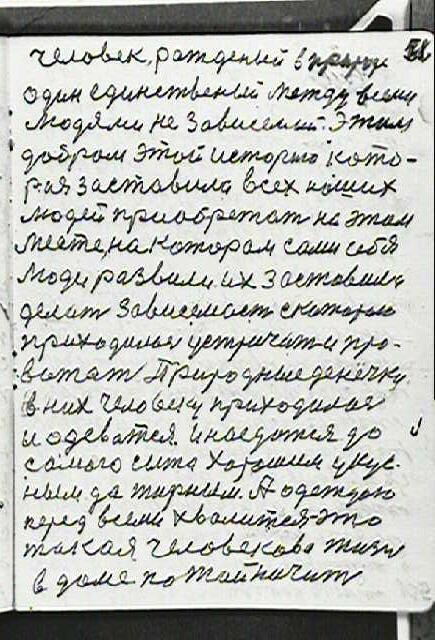 человек, рожденый в природе
один единственый между всеми
людями не зависемый. Этим
добром этой историю кото-
рая заставила всех наших
людей приобретат на этом
месте, на котором сами себя
люди развили, их заставила
делат зависемост с которою
приходилос устричат и про-
важат. Природные денёчки
в них человеку приходилос
и одеватся. и наедатся до
самого сыта хорошим укус-
ным да жирным. А одеждою
перед всеми хвалится это
такая человекова жизн
в доме по